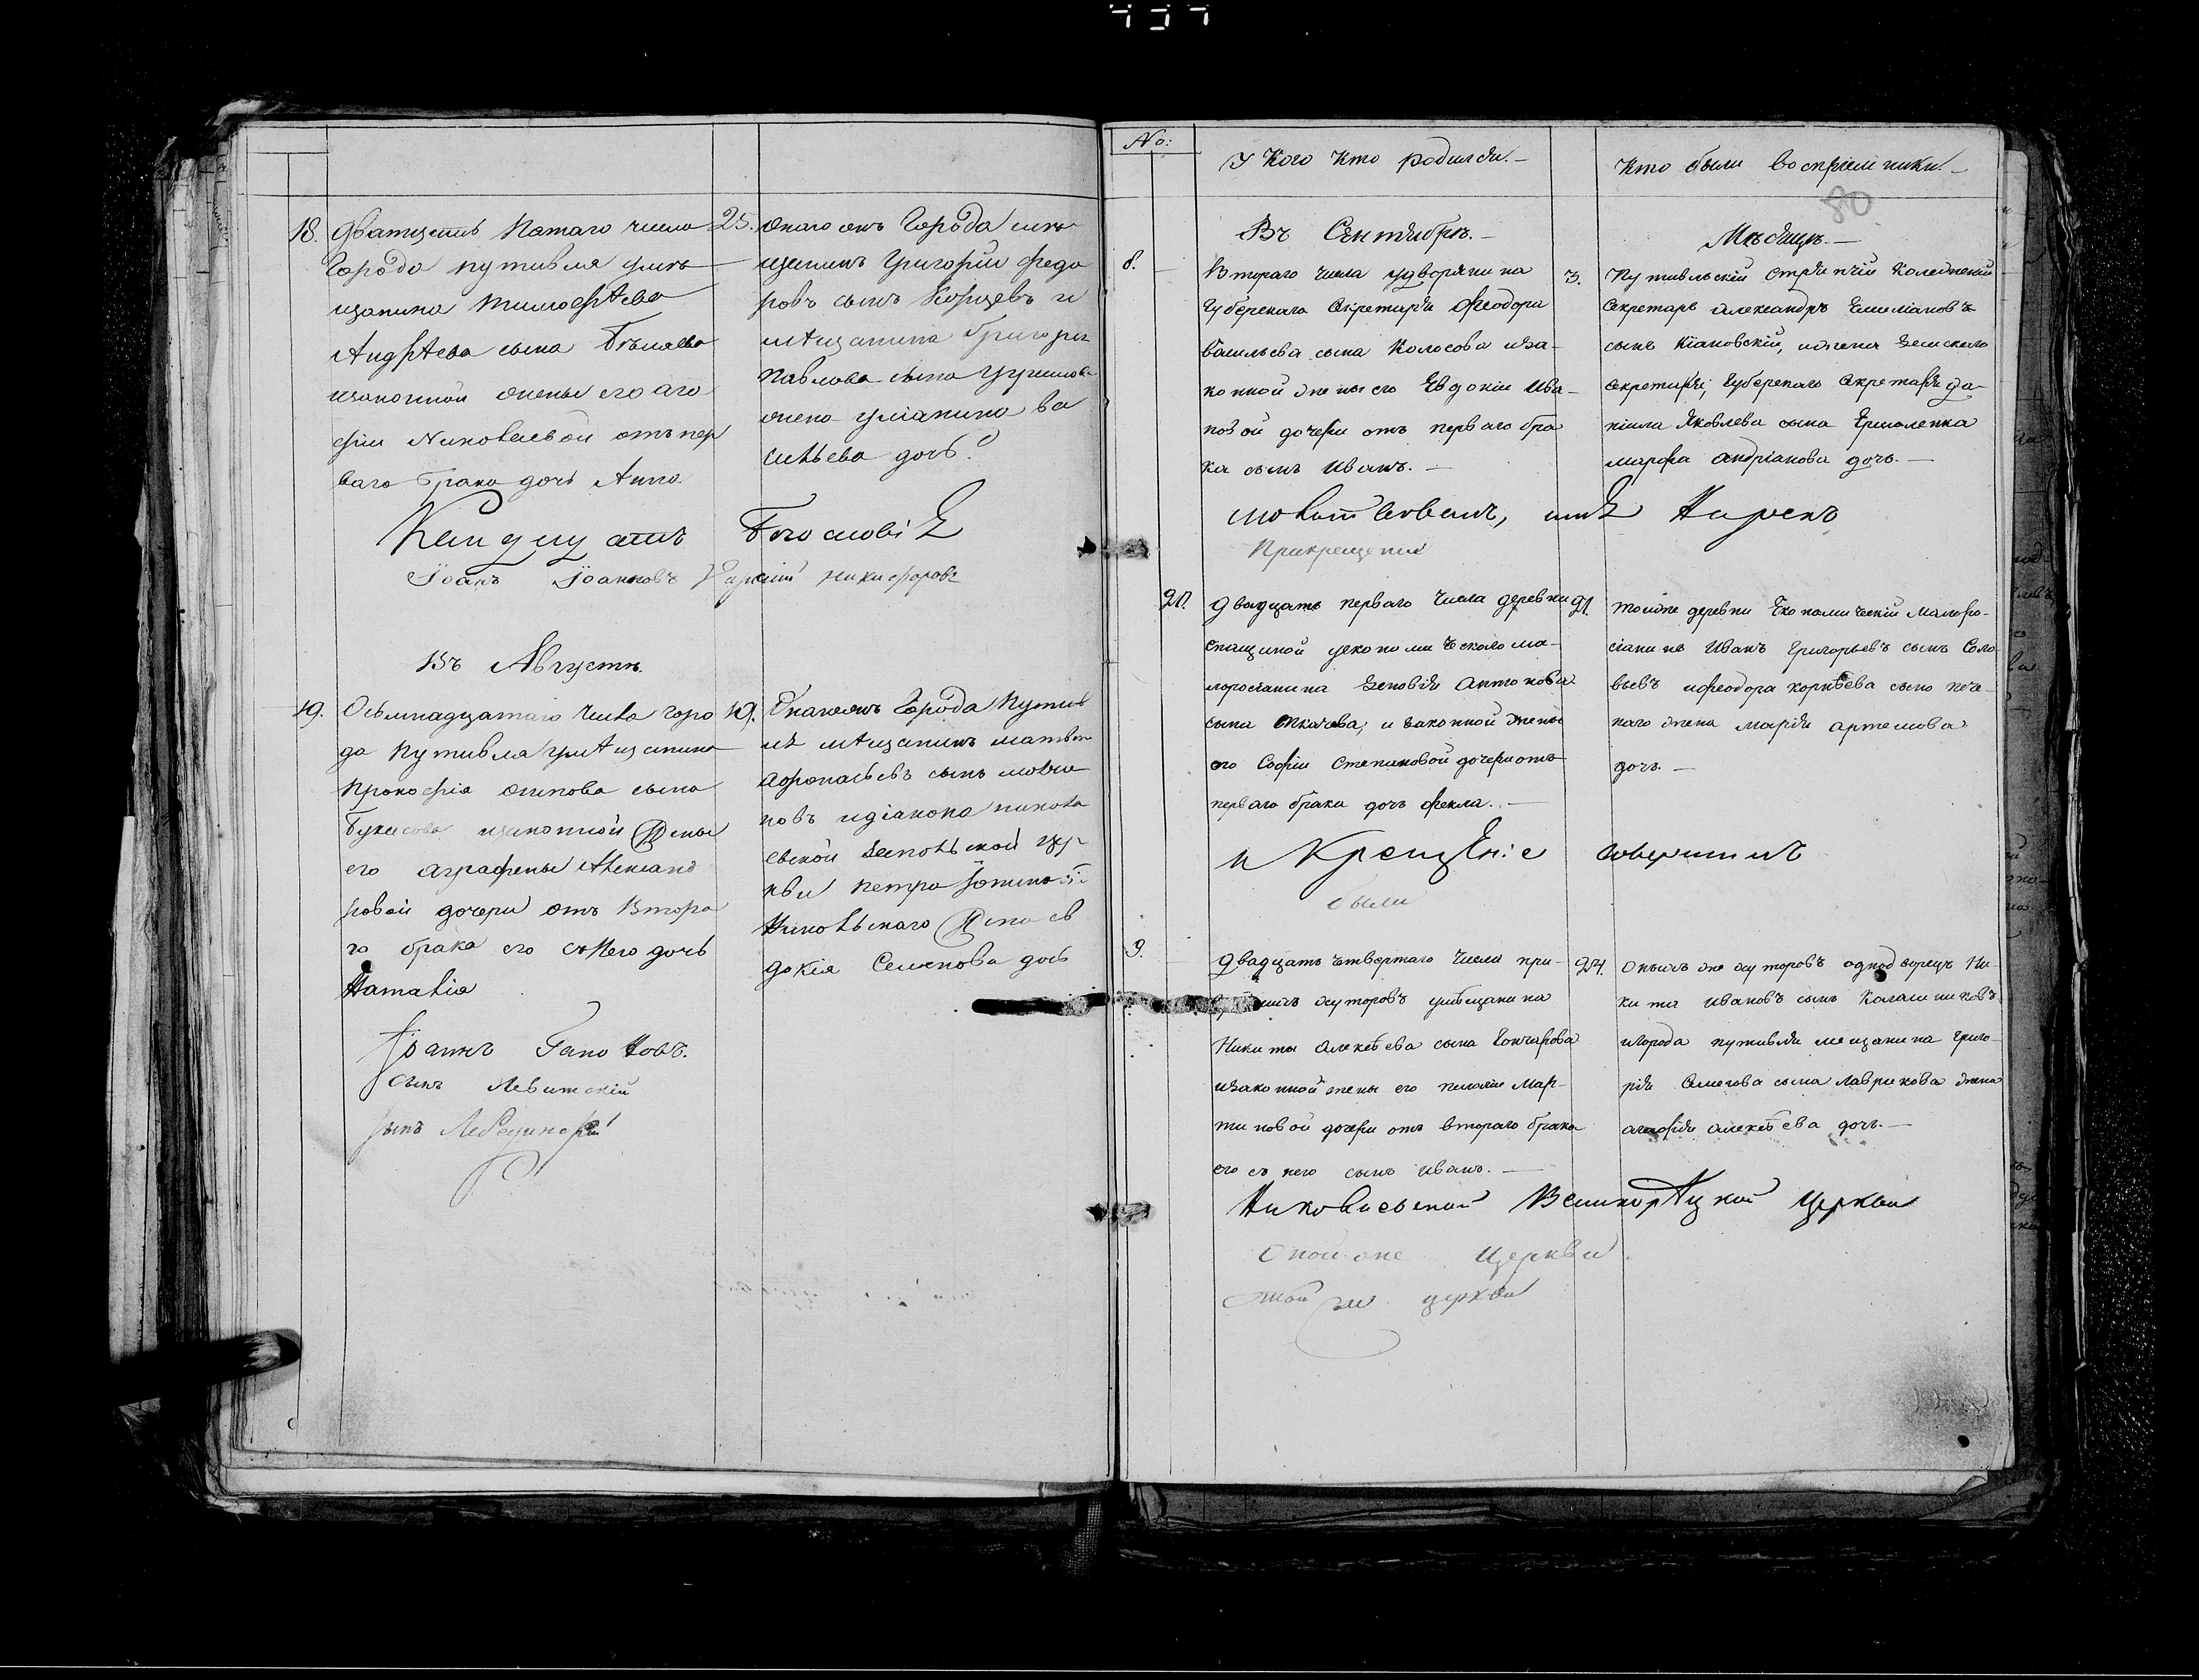 18. Дватцеть Пятаго числа
Города путивля умѣ
щанина Тимофѣева
Андрѣева сына Бѣляева
изаконной жены его ага
фіи Николаевой отъ пер
ваго брака дочь Анна.
25. Онаго жъ Города мѣ
щанинъ Григорій Федо
ровъ сынъ и
мѣщанина Григорія
Павлова сына
жена уліанина ва
сильева дочь.
Кандидатъ Богословіе
Іоанъ Іоанновъ Никифоровъ
Въ Августѣ.
19. Осьмнадцатаго числа горо
да Путивля умѣщанина
Прокофія осипова сына
изаконной жены
его аграфены Александ
ровой дочери отъ Втора
го брака его снею дочь
Наталія
19. Онагожъ Города Путив
ля мѣщанинъ матвей
Афонасьевъ сынъ
новъ идіакона никола
евской церк
кви петра
жена ев
докія Семенова дочь
Іоаннъ Гапоновъ.
сынъ Левитскій
сынъ
No:
У Кого Кто родился.—
Кто были воспріемники.—
80
Въ Сентябрѣ.—
Мѣсяцѣ.—
8. Втораго числа удворянина
Губернскаго Секретаря Феодора
васильева сына Колосова иза-
конной жены его Евдокіи Ива-
новой дочери отъ перваго бра
ка сынъ Иванъ.—
3. Путивльскій Стряпчій Колежскій
Секретарь александръ Емеліановъ
сынъ Кіановскій, ижена Земскаго
Секретаря, Губернскаго Секретаря да-
нііла Яковлева сына Ермоленка
марфа андріанова дочь.—
молитвовалъ, имя Нарекъ
Прикрещеніи
20. Двадцать перваго числа деревни
спащиной уекономическаго ма-
лоросіанина Зеновія антонова
сына Ткачева, и законной жены
его Софіи Степановой дочери отъ
перваго брака дочь фекла.—
21. тойже деревни Економическій малоро-
сіанинъ Иванъ Григорьевъ сынъ Соло
вьевъ ифеодора корнѣева сына пече-
наго жена марія артемова
дочь.—
и Крещеніе совершилъ
были
9. двадцать четвертаго числа при-
хуторовъ умѣщанина
Никиты алексѣева сына Гончарова
изаконной жены его пелагіи Мар-
тиновой дочери отъ втораго брака
его съ нею сынъ иванъ.—
24. оныхъ же хуторовъ однодворецъ Ни-
кита ивановъ сынъ Калашниковъ
игорода путивля мещанина григо-
рія Семенова сына лаврикова жена
агафія алексѣева дочь.—
Николаевской Великорѣцкой Церкви
Онойже Церкви.
той же церкви